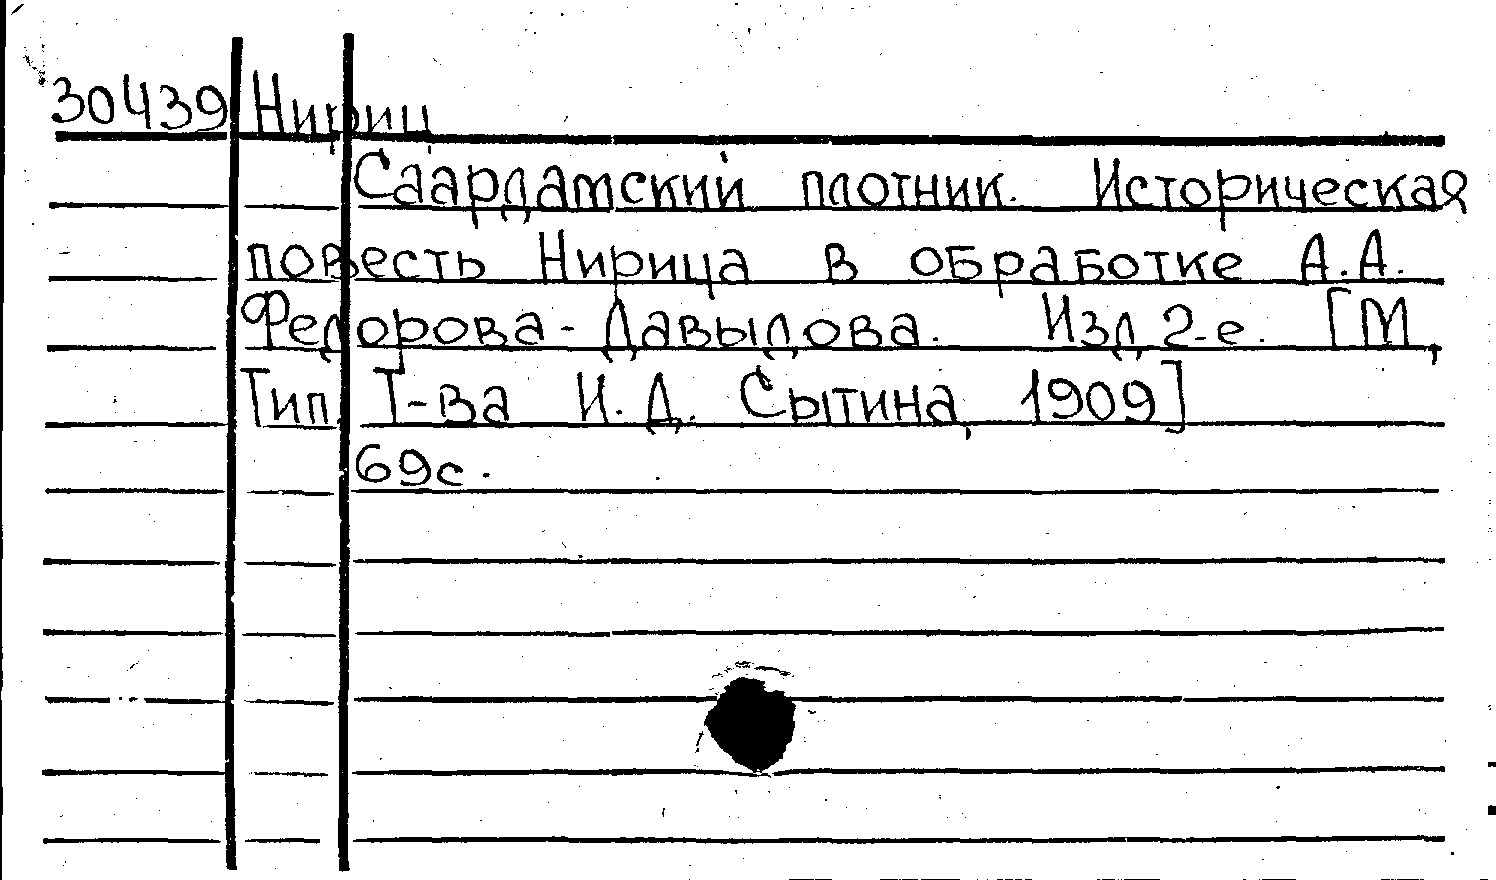 30439 Нириц
Саардамский плотник. Историческая
повесть Нирица в обработке А.А.
Федорова-Давыдова. Изд 2-е. [М,
Тип. Т-ва И.Д. Сытина, 1909]
69с.